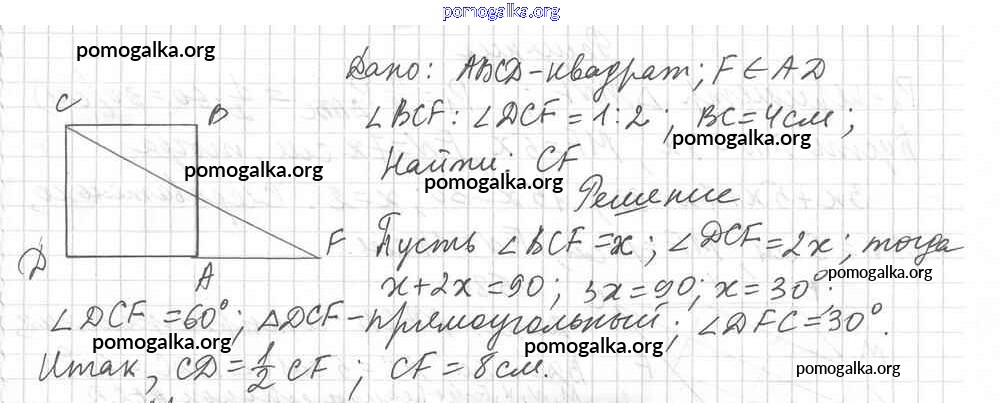 pomogalka.org
pomogalka.org
Дано: ABCD-квадрат; F ∈ AD
C B
∠BCF : ∠DCF = 1:2 ; BC = 4см ;
pomogalka.org
pomogalka.org
Найти: CF
pomogalka.org
Решение
D A F
Пусть ∠BCF = x ; ∠DCF = 2x ; тогда
pomogalka.org
x + 2x = 90 ; 3x = 90 ; x = 30° ;
∠DCF = 60° ; △DCF - прямоугольный ; ∠DFC = 30°.
pomogalka.org
pomogalka.org
Итак, CD = 1/2 CF ; CF = 8см.
pomogalka.org